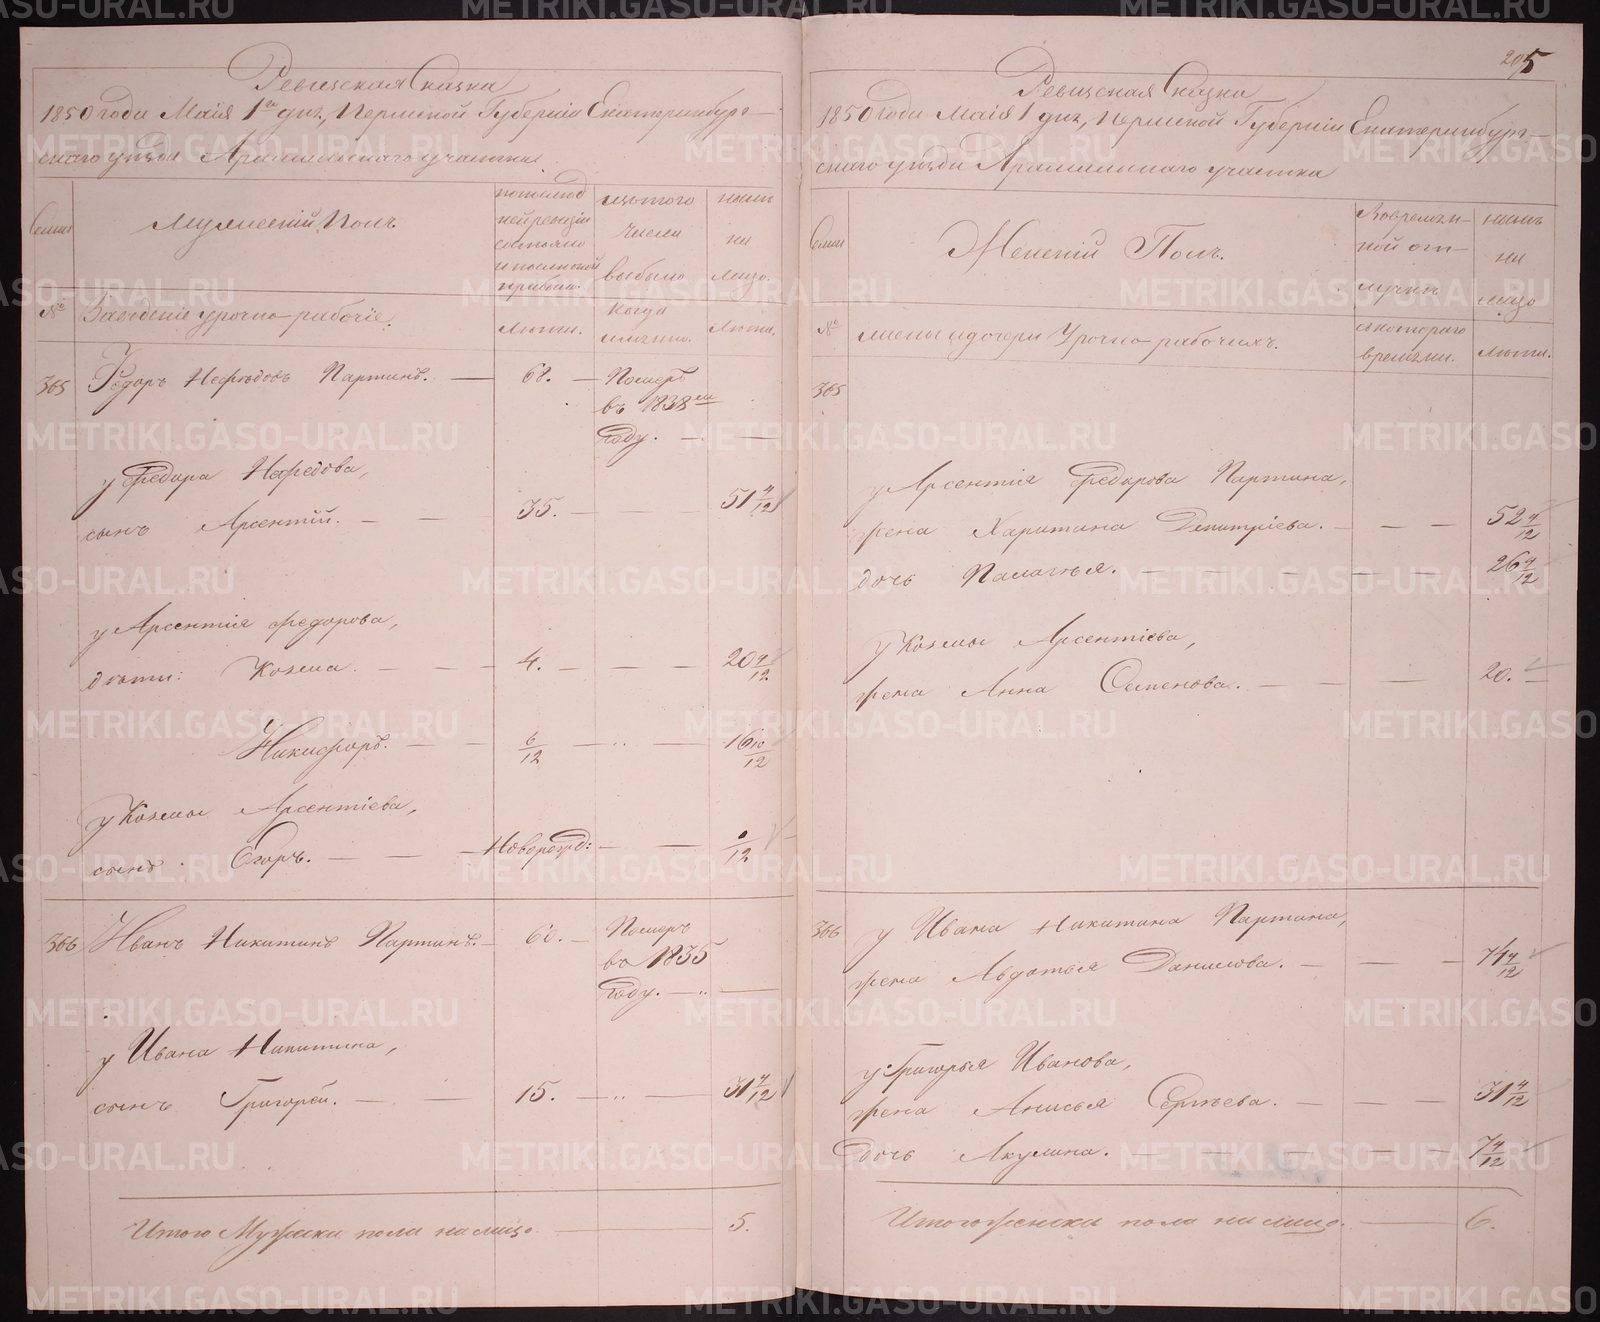 Ревизская Сказка
1850 года Маія 1го дня, Пермской Губерніи Екатеринбург-
скаго уѣзда Арамильскаго участка
Семьи
Мужескій Полъ
по послѣд
ней ревизіи
состояло
и послѣ того
прибыло.
изъ того
числа
выбыло
нынѣ
на
лицо.
№
Заводскіе урочно-рабочіе.
Лѣты.
когда
именно.
Лѣты.
365
Ѳедоръ Нефедовъ Партинъ. — 68. — Померъ
въ 1838мъ
году. —
у Ѳедора Нефедова,
сынъ Арсентій. — — 35. — — — 51 4/12
у Арсентія Федорова,
дѣти: Козма. — — — 4. — — — 20 4/12
Никифоръ. — — 6/12 — — 16 10/12
у Козмы Арсентіева,
сынъ Егоръ. — — — Новорожд: — — /12
366 Иванъ Никитинъ Партинъ. — 60. — Померъ
въ 1835
году. —
у Ивана Никитина,
сынъ Григорей. — — 15. — — 31 4/12
Итого Мужска пола на лицо. — 5.
205
Ревизская Сказка
1850 года Маія 1 дня, Пермской Губерніи Екатеринбург-
скаго уѣзда Арамильскаго участка
Семьи
Женскій Полъ.
Во времен-
ной от-
лучкѣ
нынѣ
на
лицо
№
жены и дочери Урочно-рабочихъ.
съ котораго
времени.
Лѣты.
365
у Арсентія Ѳедорова Партина,
жена Харитина Дмитріева. — — — 52 4/12
дочь Палагѣя. — — — 26 4/12
у Козмы Арсентіева,
жена Анна Семенова. — — — 20. —
366 у Ивана Никитина Партина,
жена Авдотья Данилова. — — — 71 4/12
у Григорья Иванова,
жена Анисья Сергѣева. — — — 31 4/12
дочь Акулина. — — — 7 4/12
Итого женска пола на лицо. — 6.
METRIKI.GASO-URAL.RU